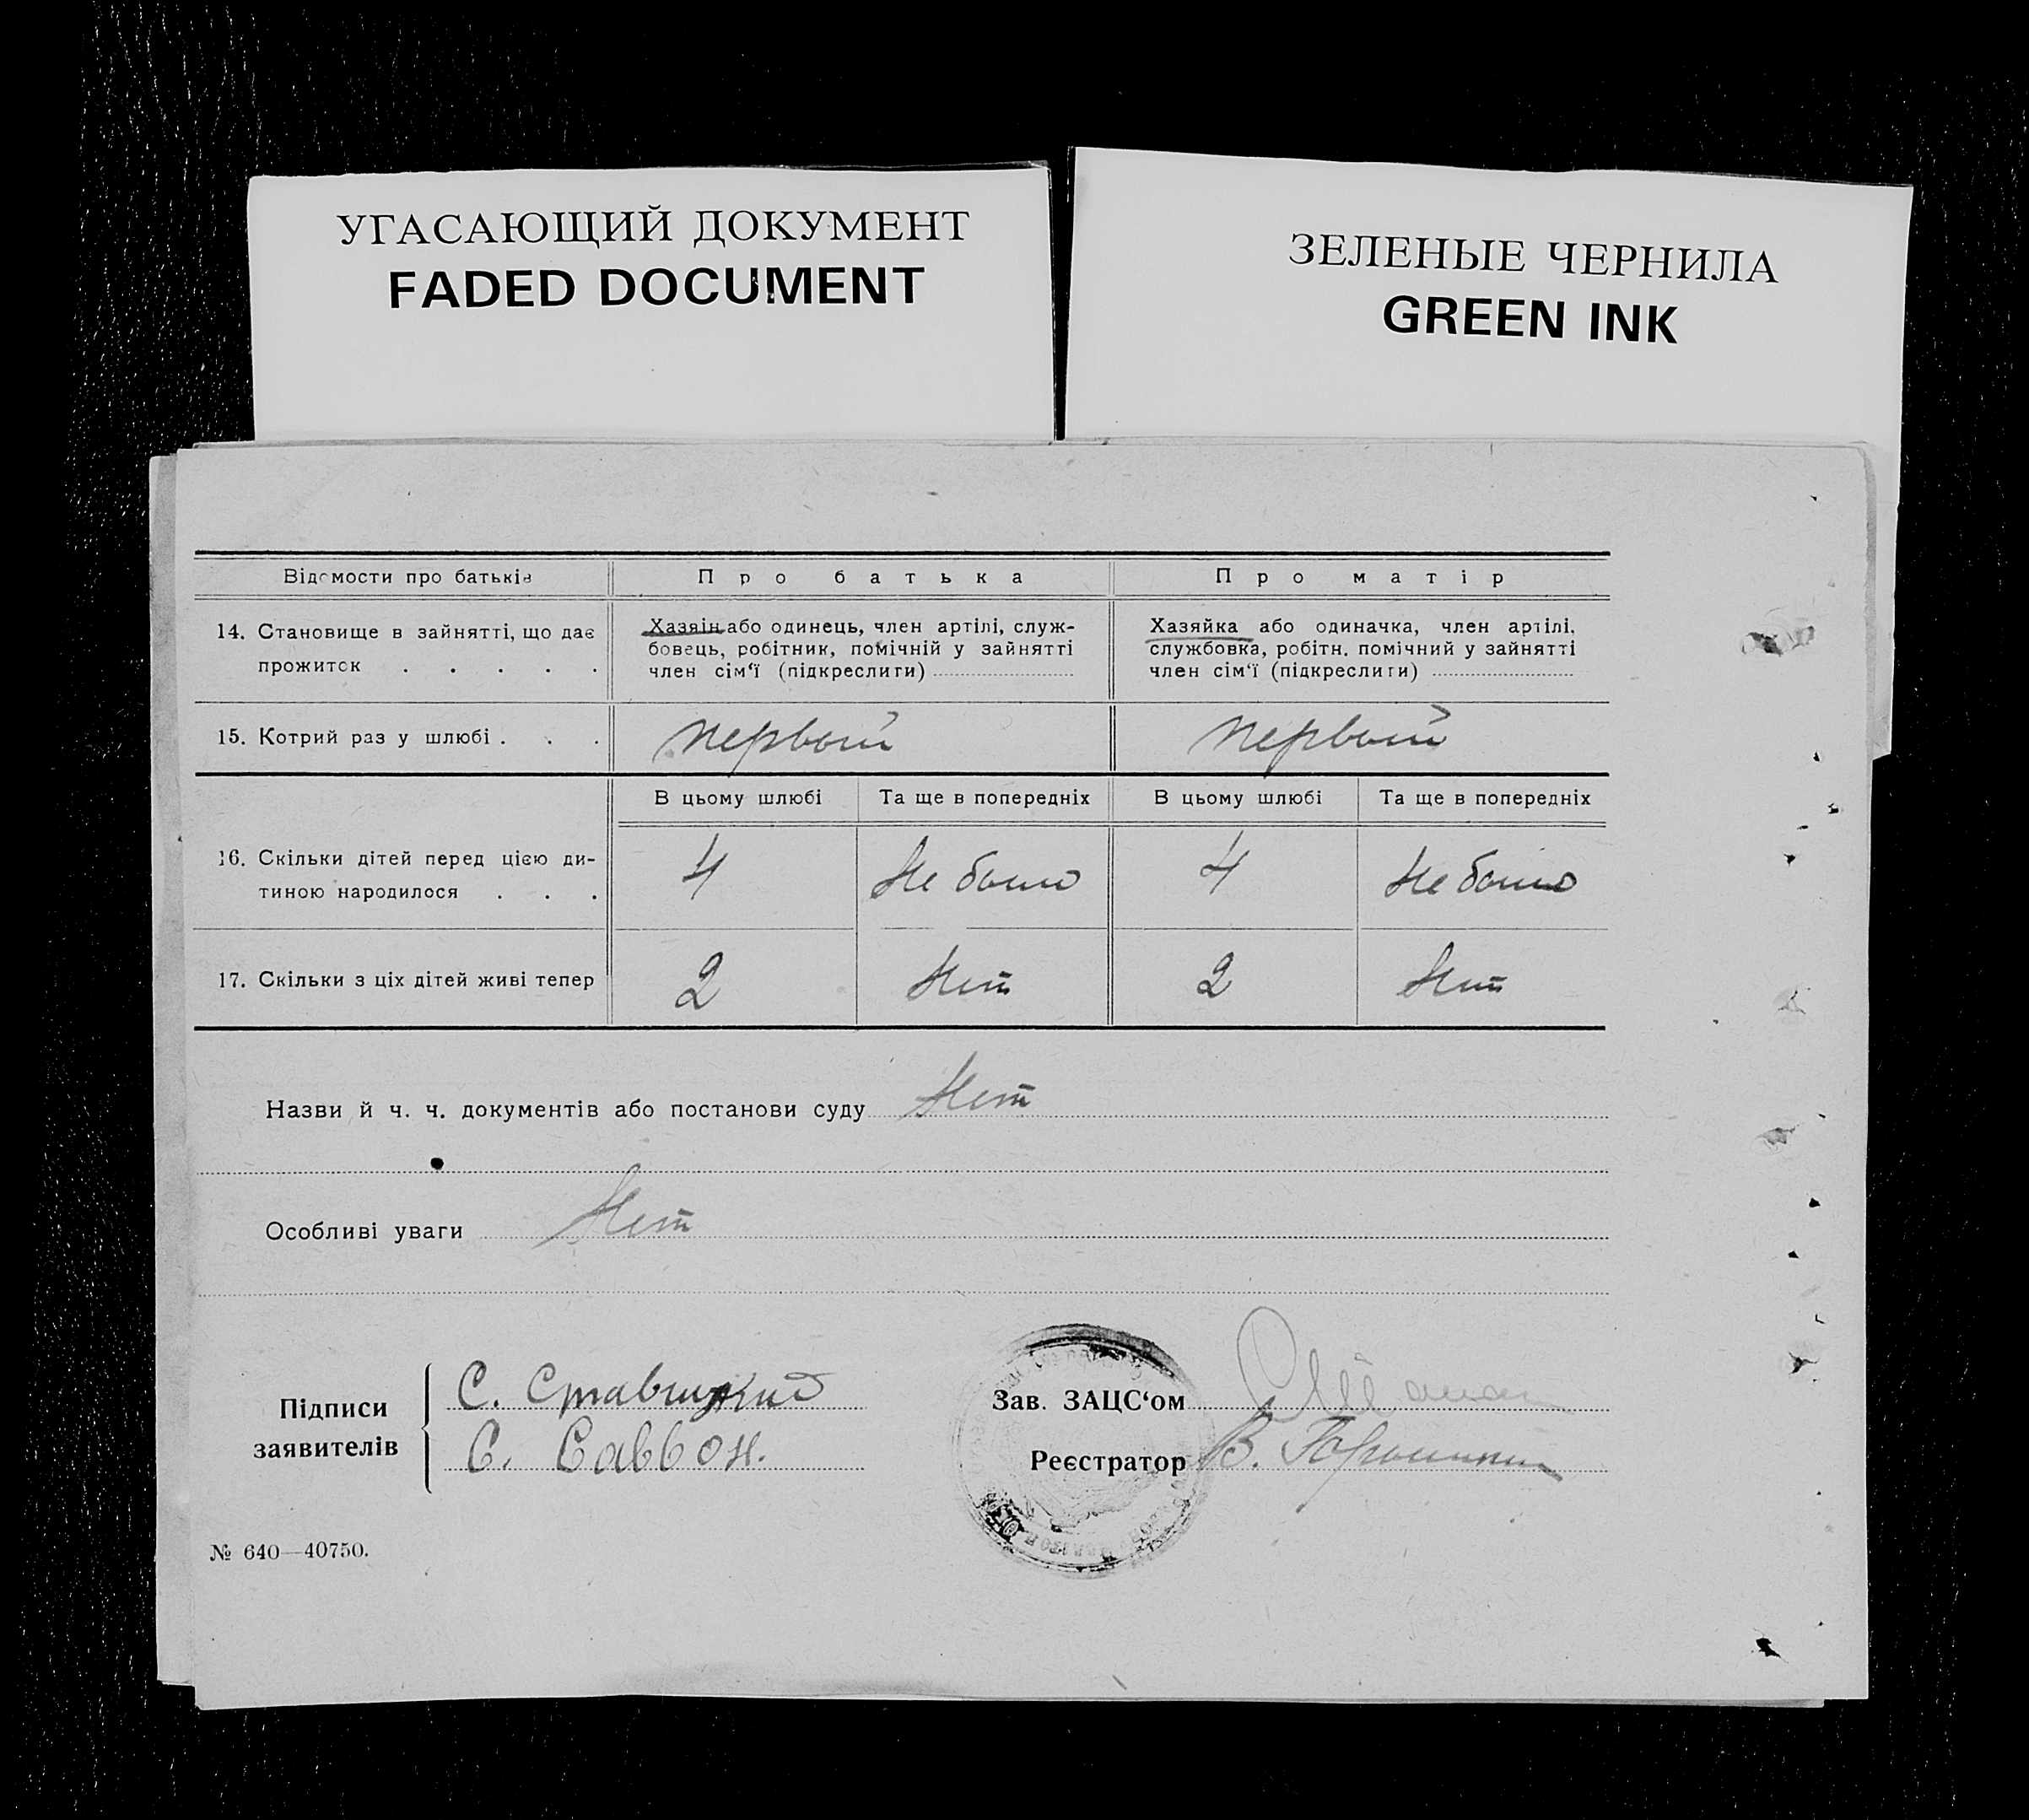 УГАСАЮЩИЙ ДОКУМЕНТ
FADED DOCUMENT
ЗЕЛЕНЫЕ ЧЕРНИЛА
GREEN INK
Відомости про батьків
Про батька
Про матір
14. Становище в зайнятті, що дає
прожиток . . . . .
Хазяїн або одинець, член артілі, служ-
бовець, робітник, помічній у зайнятті
член сім‘ї (підкреслити)
Хазяйка або одиначка, член артілі,
службовка, робітн. помічний у зайнятті
член сім‘ї (підкреслити)
15. Котрий раз у шлюбі . . .
первый
первый
В цьому шлюбі
Та ще в попередніх
В цьому шлюбі
Та ще в попередніх
16. Скільки дітей перед цією ди-
тиною народилося . . .
4
Не было
4
Не было
17. Скільки з ціх дітей живі тепер
2
Нет
2
Нет
Назви й ч. ч. документів або постанови суду Нет
Особливі уваги Нет
Підписи
заявителів
С. Ставицкий
С. Саввон.
Зав. ЗАЦС‘ом
Реєстратор В.
№ 640—40750.